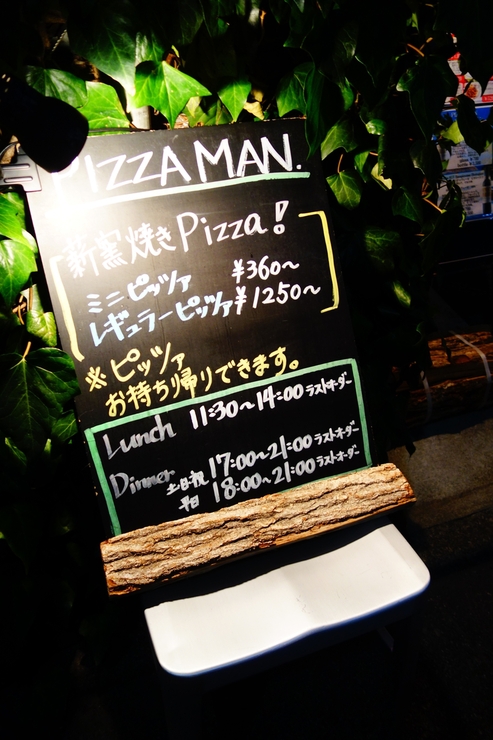 PIZZA MAN.
薪窯焼きPizza!
ミニピッツァ ¥360〜
レギュラーピッツァ¥1250〜
※ピッツァ
お持ち帰りできます。
Lunch 11:30〜14:00 ラストオーダー
Dinner 土日祝 17:00〜21:00 ラストオーダー
平日 18:00〜21:00 ラストオーダー